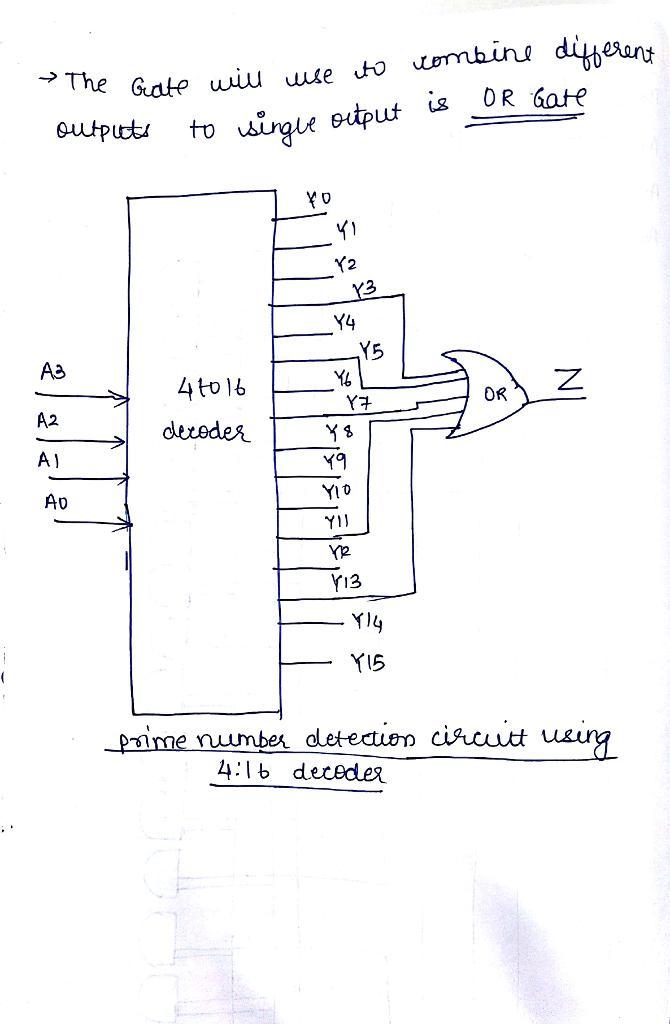 → The Gate will use to combine different
outputs to single output is OR Gate
Y0
Y1
Y2
Y3
Y4
Y5
Y6
Y7
Y8
Y9
Y10
Y11
Y12
Y13
Y14
Y15
A3
A2
A1
A0
4 to 16
decoder
OR
Z
prime number detection circuitt using
4:16 decoder